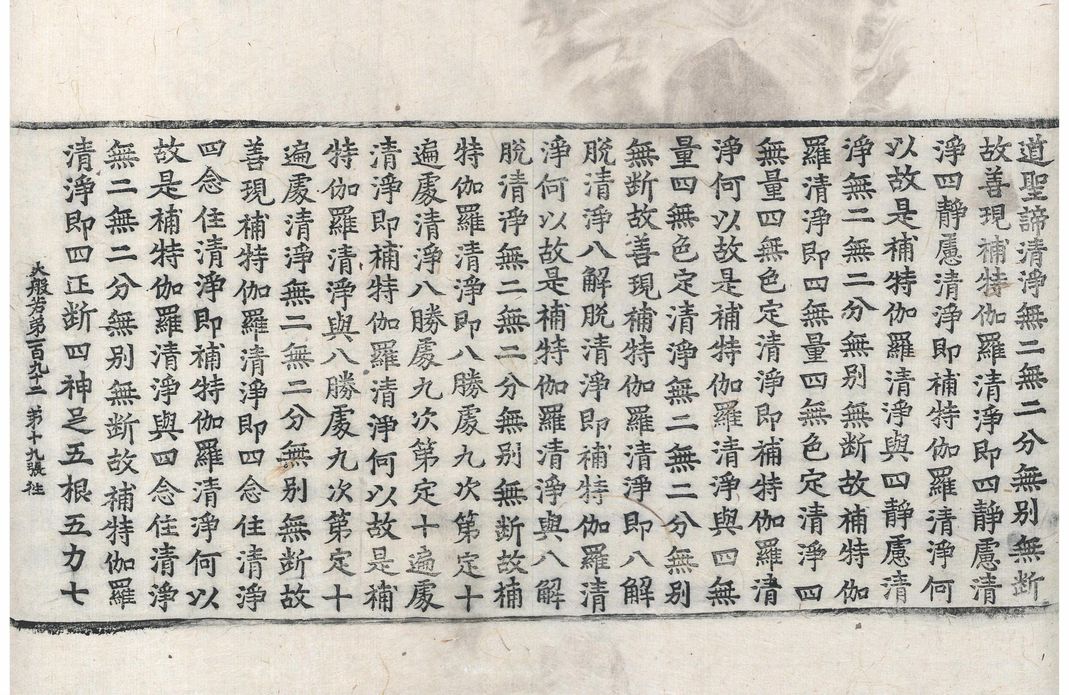 道聖諦清淨無二無二分無別無断
故善現補特伽羅清淨即四靜慮清
淨四靜慮清淨即補特伽羅清淨何
以故是補特伽羅清淨與四靜慮清
淨無二無二分無別無断故補特伽
羅清淨即四無量四無色定清淨四
無量四無色定清淨即補特伽羅清
淨何以故是補特伽羅清淨與四無
量四無色定清淨無二無二分無別
無断故善現補特伽羅清淨即八解
脫清淨八解脫清淨即補特伽羅清
淨何以故是補特伽羅清淨與八解
脫清淨無二無二分無別無断故補
特伽羅清淨即八勝處九次第定十
遍處清淨八勝處九次第定十遍處
清淨即補特伽羅清淨何以故是補
特伽羅清淨與八勝處九次第定十
遍處清淨無二無二分無別無断故
善現補特伽羅清淨即四念住清淨
四念住清淨即補特伽羅清淨何以
故是補特伽羅清淨與四念住清淨
無二無二分無別無断故補特伽羅
清淨即四正断四神足五根五力七
大般若第一百九十二 第十九張 往